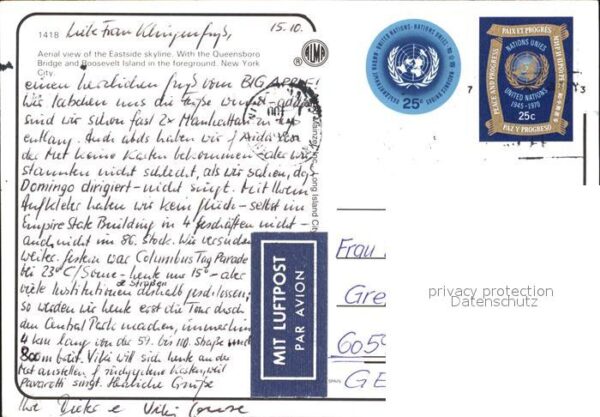 1418
15.10.
Aerial view of the Eastside skyline. With the Queensboro
Bridge and Roosevelt Island in the foreground. New York
City.
ALMA
einen herzlichen Gruß vom BIG APPLE!
Wir latschen uns die Füße wund
sind wir schon fast 2x Manhattan
entlang. Auch abds haben wir f. Aida
der Met keine Karten bekommen - aber wir
staunten nicht schlecht, als wir sahen, daß
Domingo dirigiert - nicht singt. Mit Ihrem
Aufkleber haben wir kein Glück - selbst im
Empire State Building in 4 Geschäften nicht -
auch nicht im 86. Stock. Wir versuchen
weiter. Gestern war Columbus Tag Parade
bei 23°C/Sonne - heute nur 15° - aber
viele Institutionen deshalb geschlossen,
e Straßen
so werden wir heute erst die Tour durch
den Central Park machen, immerhin
4 km lang von der 59. bis 110. Straße und
800m breit. Viki will sich heute an der
Met anstellen f. Karten, weil
Pavarotti singt. Herzliche Grüße
Ihre
Long Island City
MIT LUFTPOST
PAR AVION
UNITED NATIONS · NATIONS UNIES
25c
PAIX ET PROGRÈS
PEACE AND PROGRESS
NATIONS UNIES
UNITED NATIONS
1945-1970
25c
PAZ Y PROGRESO
Frau
Gre
605
GE
privacy protection
Datenschutz